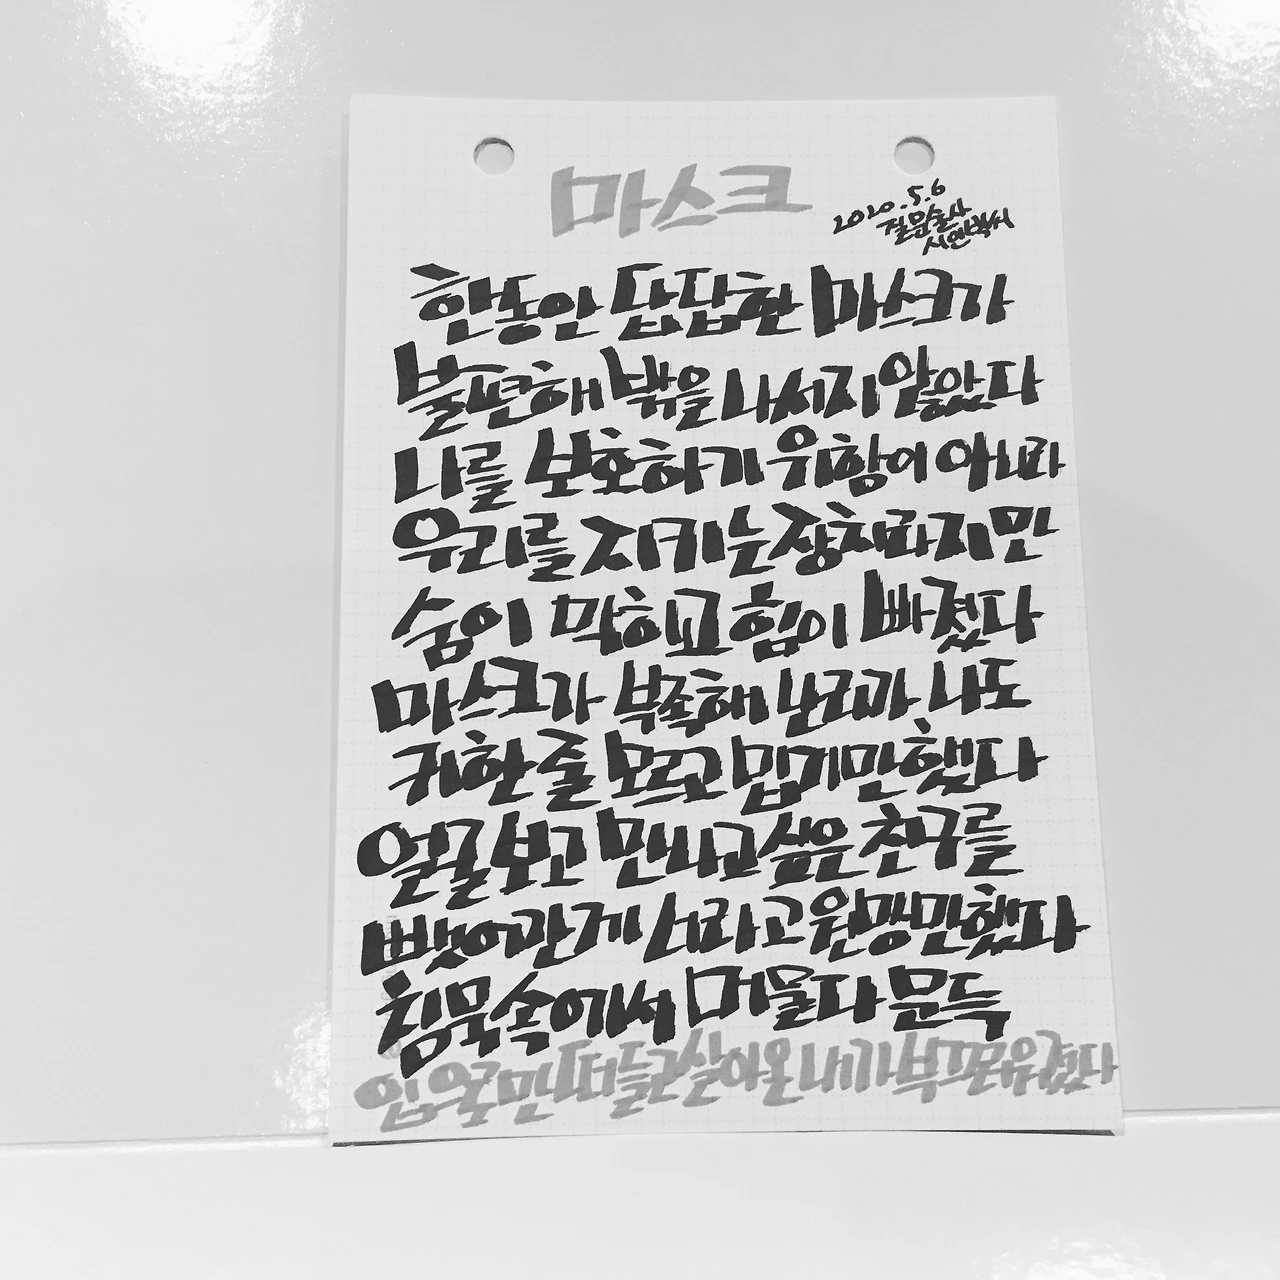 마스크
2020.5.6
질문술사
시연박씨
한동안 답답한 마스크가
불편해 밖을 나서지 않았다
나를 보호하기 위함이 아니라
우리를 지키는 장치라지만
숨이 막히고 힘이 빠졌다
마스크가 부족해 난리라 나도
귀한 줄 모르고 밉기만 했다
얼굴 보고 만나고 싶은 친구를
뺏어간 게 너라고 원망만 했다
침묵 속에서 머물다 문득
입으로만 떠들고 살아온 내가 부끄러워졌다